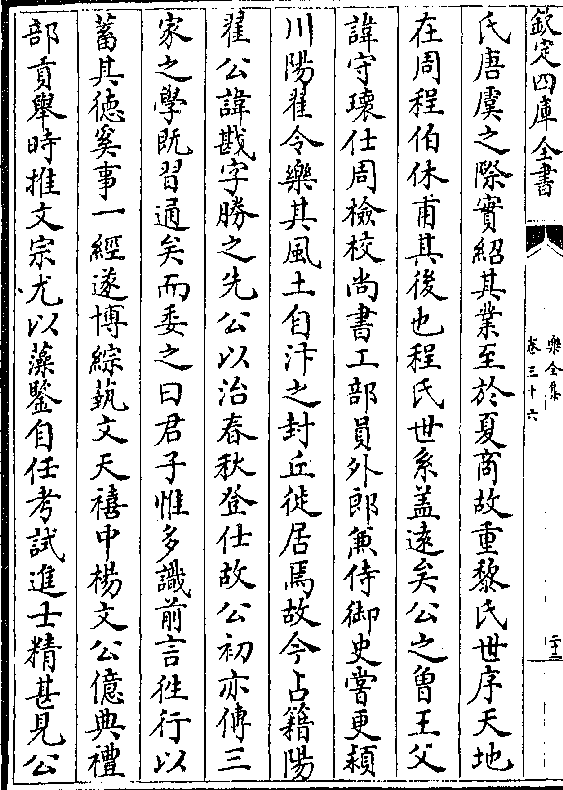 欽定四庫全書
樂全集
卷三十六
二十二
氏唐虞之際實紹其業至於夏商故重黎氏世序天地
在周程伯休甫其後也程氏世系盖遠矣公之曾王父
諱守瓌仕周檢校尚書工部員外郎兼侍御史嘗更潁
川陽翟令樂其風土自汴之封丘徙居焉故今占籍陽
翟公諱戡字勝之先公以治春秋登仕故公初亦傳三
家之學既習通矣而委之曰君子惟多識前言徃行以
蓄其徳奚事一經遂博綜藝文天禧中楊文公億典禮
部貢舉時推文宗尤以藻鑒自任考試進士精甚見公